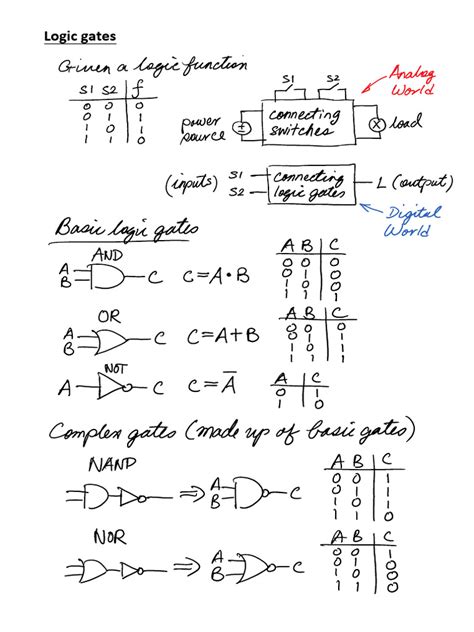 Logic gates
Given a logic function
S1 S2 f
0 0 0
0 1 0
1 0 1
1 1 0
S1 S2
Analog
World
power
source
connecting
switches
load
(inputs) S1 S2
connecting
logic gates
L (output)
Digital
World
Basic logic gates
AND
A
B
C
C=A•B
A B C
0 0 0
0 1 0
1 0 0
1 1 1
OR
A
B
C
C=A+B
A B C
0 0 0
0 1 1
1 0 1
1 1 1
NOT
A
C
C=A̅
A C
0 1
1 0
Complex gates (made up of basic gates)
NAND
⇒
A
B
C
A B C
0 0 1
0 1 1
1 0 1
1 1 0
NOR
⇒
A
B
C
A B C
0 0 1
0 1 0
1 0 0
1 1 0